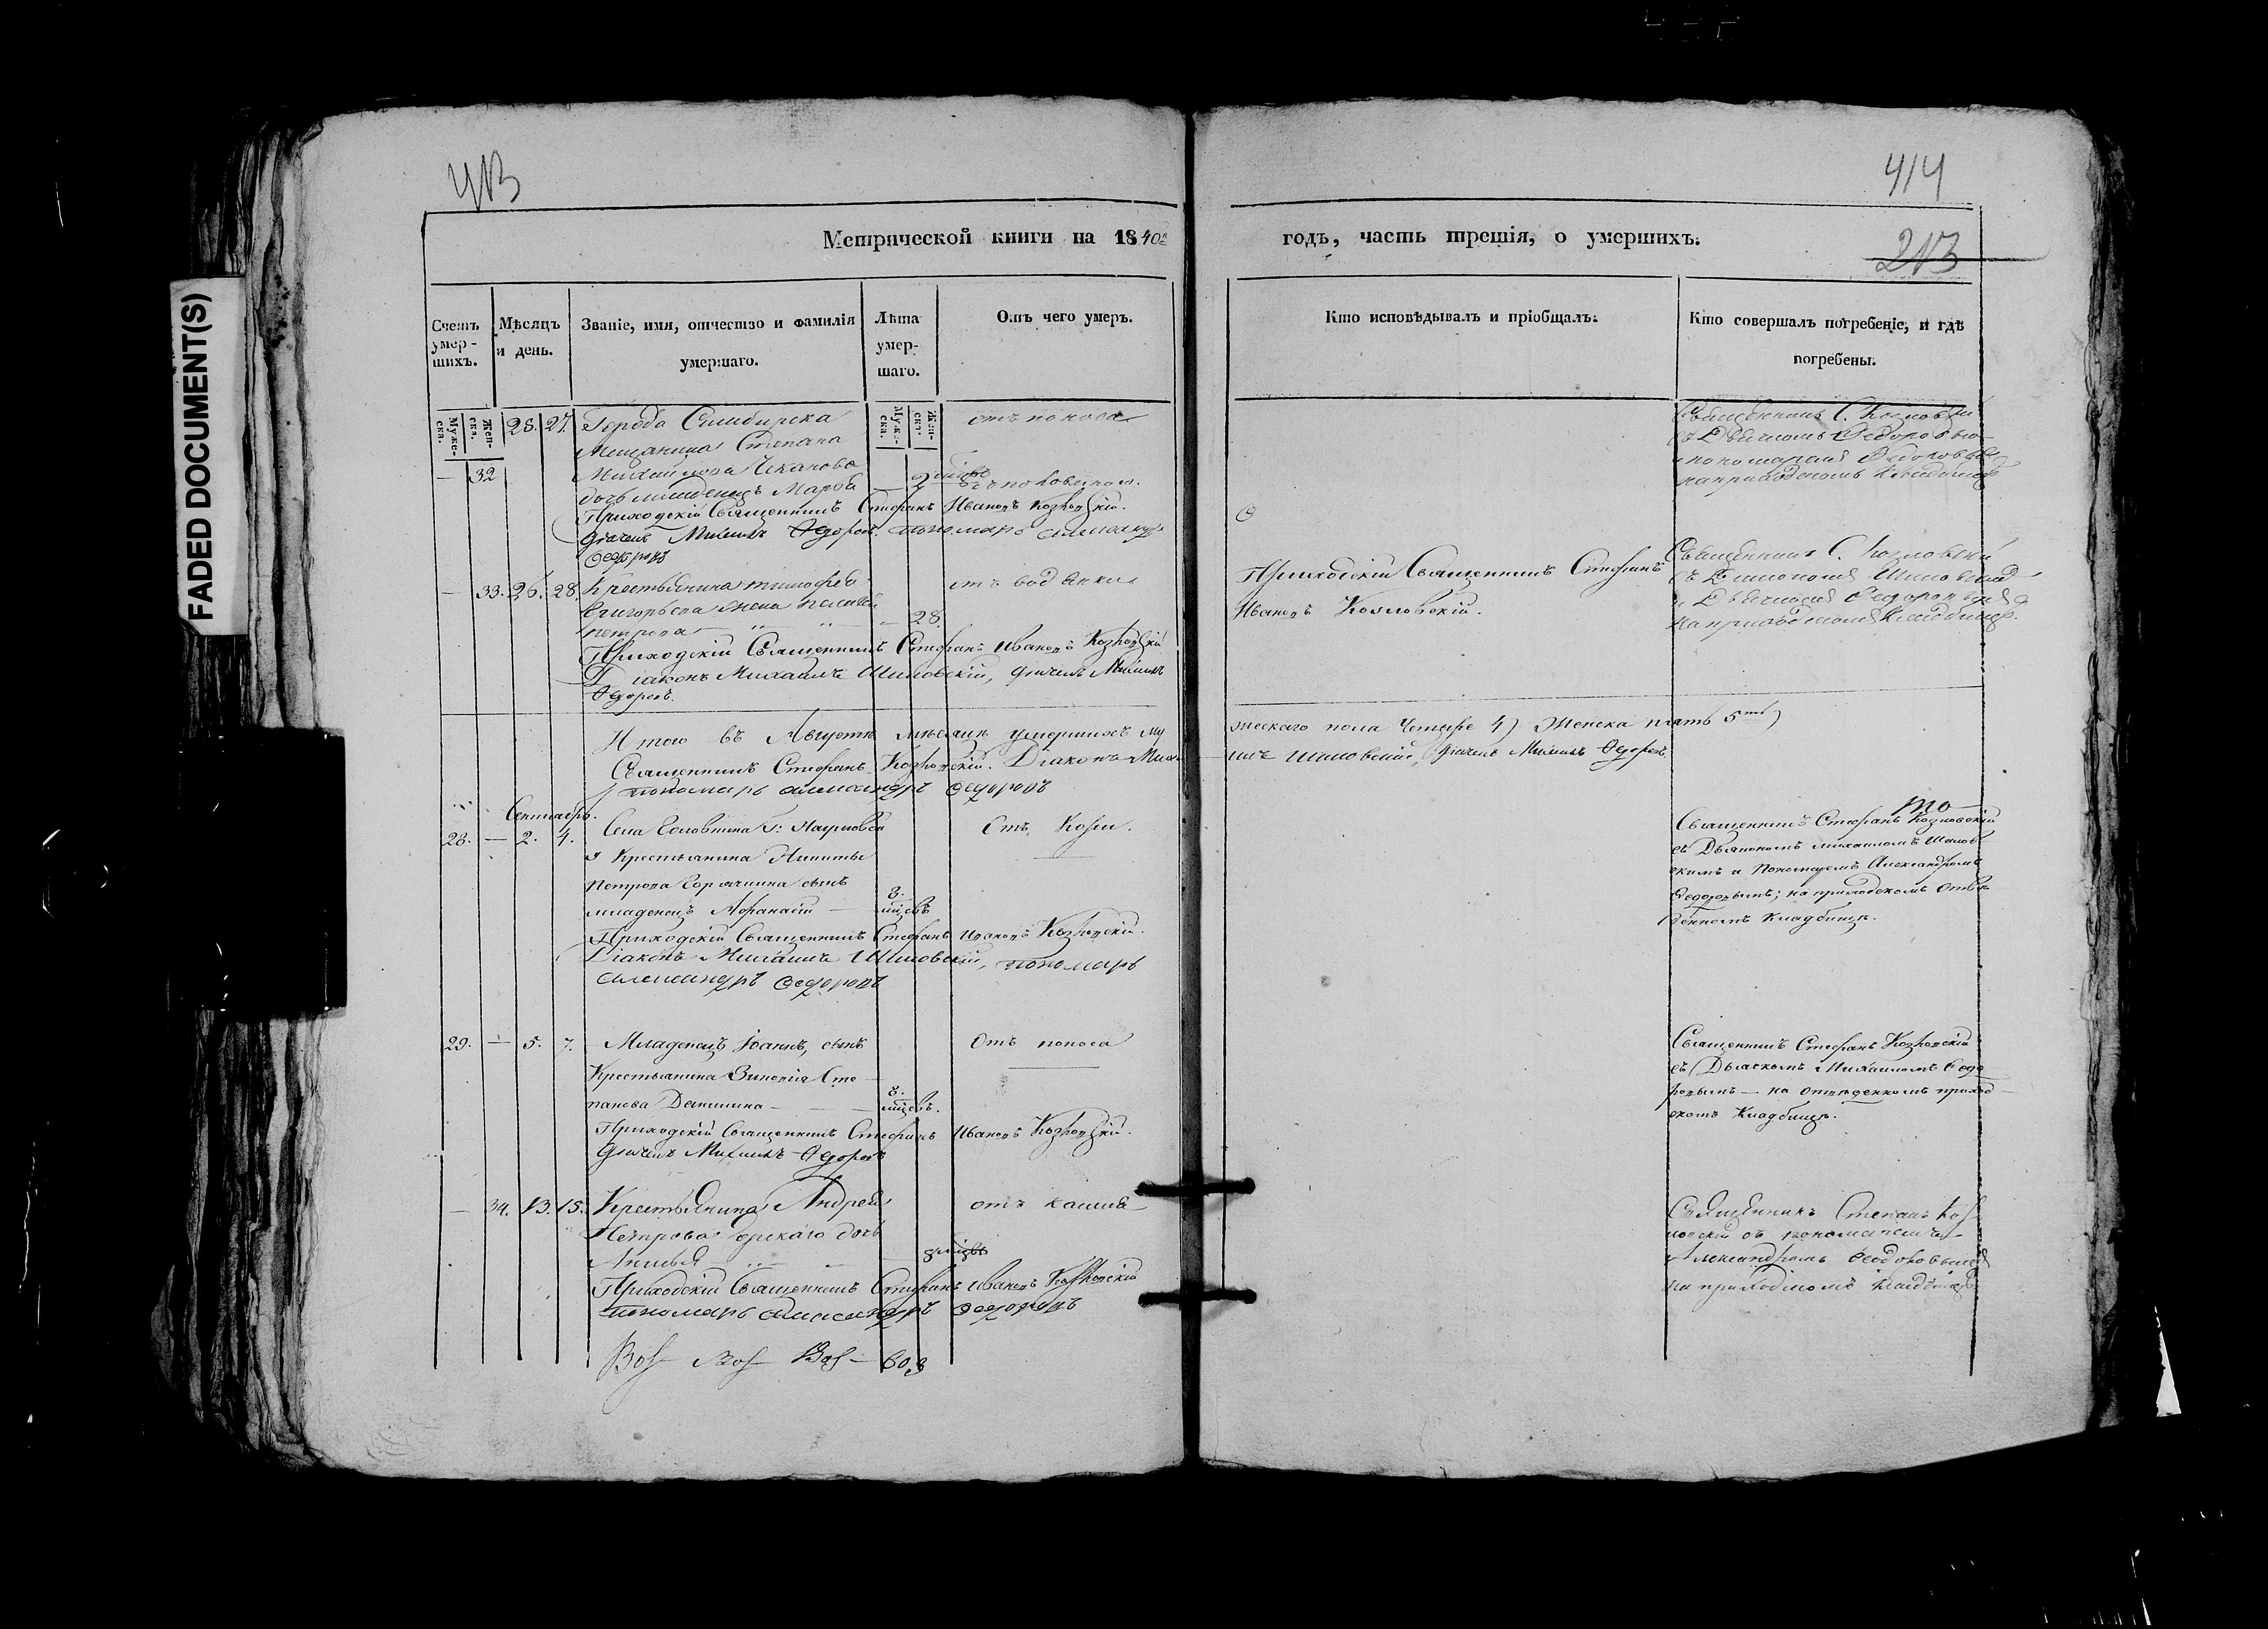 413
414
213
FADED DOCUMENT(S)
Метрической книги на 1840й
годъ, часть третія, о умершихъ.
Счетъ умер-шихъ.
Мѣсяцъ и день.
Званіе, имя, отчество и фамилія умершаго.
Лѣта умер-шаго.
Отъ чего умеръ.
Кто исповѣдывалъ и пріобщалъ.
Кто совершалъ погребеніе, и гдѣ погребены.
Муже-ска.
Жен-ска.
Муже-ска.
Жен-ска.
— 32 25. 27. Города Симбирска
отъ поноса
Мещанина Степана
Михайлова Чеканова
дочь младенецъ Марѳа
2
съ половиною.
Приходскій Священникъ Стефанъ Ивановъ Козловскій.
Дьячекъ Михаилъ Ѳедоровъ. пономарь Александръ
Ѳедоровъ
Священникъ С. Козловскій
съ Дьячкомъ Ѳедоровымъ
пономаремъ Ѳедоровымъ
на приходскомъ кладбищѣ
— 33. 26. 28. Крестьянина Тимофея
отъ водянки
Григорьева жена Пелагея
Петрова — 28.
Приходскій Священникъ Стефанъ Ивановъ Козловскій
Діаконъ Михаилъ Шиловскій, дьячекъ Михаилъ
Ѳедоровъ.
Приходскій Священникъ Стефанъ
Ивановъ Козловскій.
Священникъ С. Козловскій
съ Діакономъ Шиловскимъ
и Дьячкомъ Ѳедоровымъ
на приходскомъ кладбищѣ.
Итого въ Августѣ мѣсяцѣ умершихъ му
жескаго пола Четыре 4) Женска пять 5ть)
Священникъ Стефанъ Козловскій. Діаконъ Миха
илъ Шиловскій, Дьячекъ Михаилъ Ѳедоровъ
пономарь Александръ Ѳедоровъ
Сентябрь.
28. — 2. 4. Села Головтина
отъ Кори.
Крестьянина Никиты
Петрова Горячкина сынъ
младенецъ Афанасій —
8. мѣсцовъ
Приходскій Священникъ Стефанъ Ивановъ Козловскій.
Діаконъ Михаилъ Шиловскій, пономарь
Александръ Ѳедоровъ
то
Священникъ Стефанъ Козловскій
съ Дьякономъ Михаиломъ Шилов
скимъ и Пономаремъ Александромъ
Ѳедоровымъ; на приходскомъ отве
денномъ Кладбищѣ.
29. — 5. 7. Младенецъ Іоаннъ, сынъ
Отъ поноса
Крестьянина Зиновія Сте
панова Данилина —
8. мѣсцовъ.
Приходскій Священникъ Стефанъ Ивановъ Козловскій.
Дьячекъ Михаилъ Ѳедоровъ
Священникъ Стефанъ Козловскій
съ Дьячкомъ Михаиломъ Ѳедо
ровымъ — на отведенномъ приход
скомъ Кладбищѣ.
— 34. 13. 15. Крестьянина Андрея
отъ кашля
Петрова дочь
Приходскій Священникъ Стефанъ Ивановъ Козловскій
пономарь Александръ Ѳедоровъ
Священникъ Степанъ Коз
ловскій съ пономаремъ
Александромъ Ѳеодоровымъ
на приходскомъ кладбищѣ